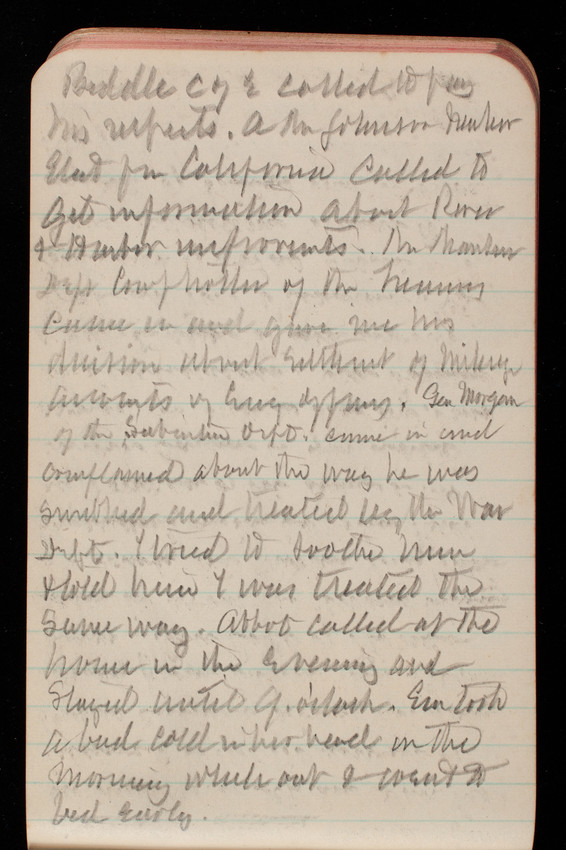 Biddle C of E called to pay
his respects. A Mr Johnson
from California called to
get information about River
& Harbor improvements. Mr
Dept Comptroller of the Treasury
came in and gave me his
decision about settlement of mileage
accounts of Eng officers. Gen Morgan
of the Subsistence Dept. came in and
complained about the way he was
snubbed and treated by the War
Dept. I tried to soothe him
& told him I was treated the
same way. Abbot called at the
house in the Evening and
stayed until 9. o'clock. Em took
a bad cold in her head in the
morning while out & went to
bed early.